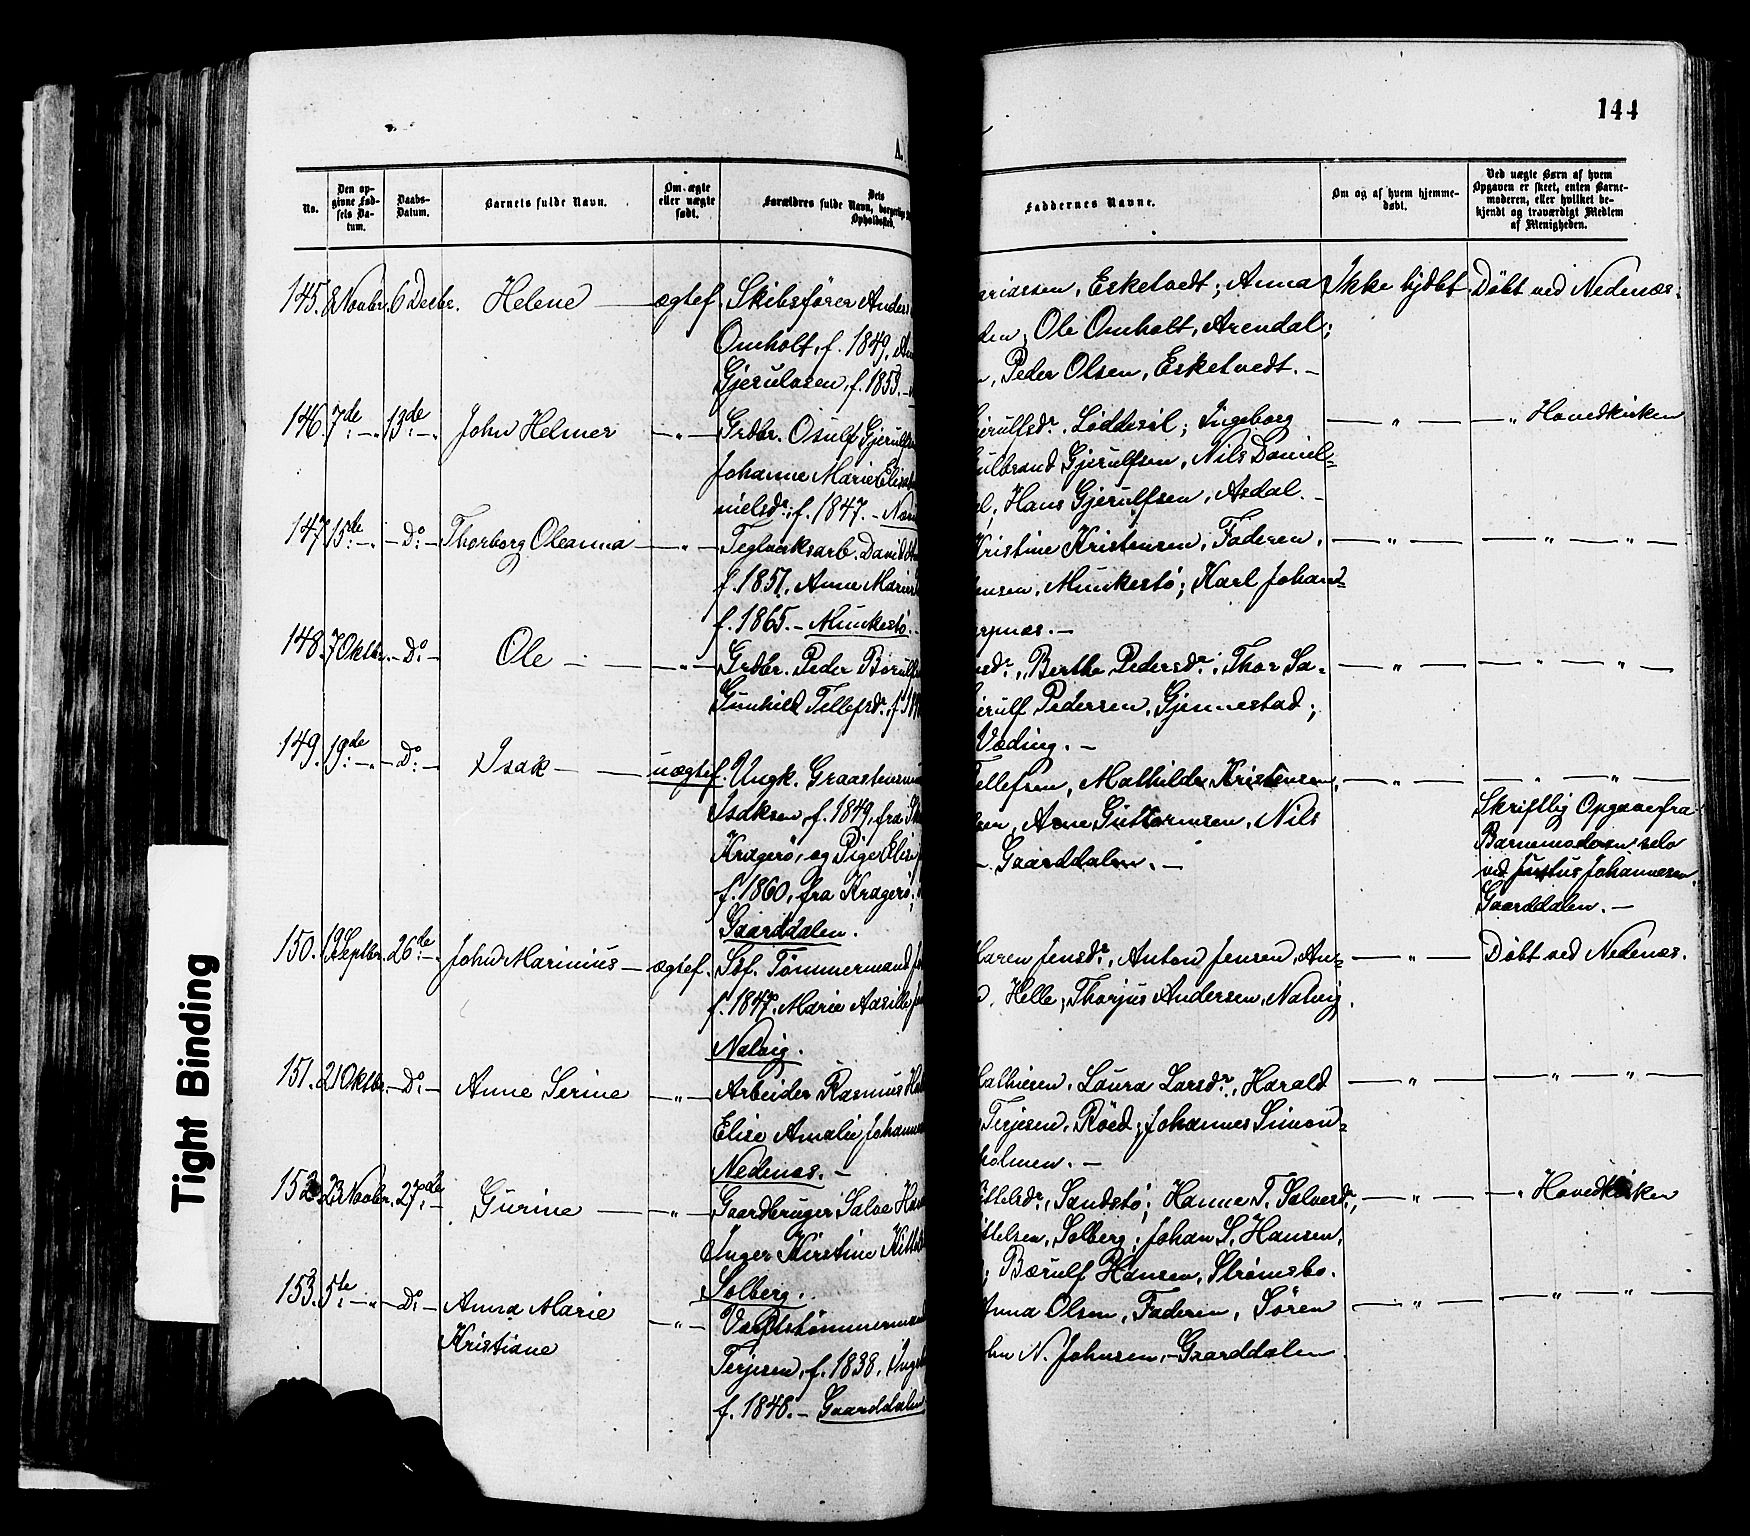 144
A.
No.
Den op-
givne Fød-
sels Da-
tum.
Daabs-
Datum.
Barnets fulde Navn.
Om ægte
eller uægte
født.
Dets
Forældres fulde Navn, borgerlige
Opholdssted.
Faddernes Navne.
Om og af hvem hjemme-
døbt.
Ved uægte Børn af hvem
Opgaven er skeet, enten Barne-
moderen, eller hvilket be-
kjendt og troværdigt Medlem
af Menigheden.
145. 8 Novbr. 6 Decbr. Helene — ægtef. Skibsfører Anders
Omholt, f. 1849,
Gjerulasen, f. 1853. –
Esketvedt; Anna Ikke hjdbt Döbt ved Nedenæs.
Ole Omholt, Arendal;
Peder Olsen, Esketvedt. –
146. 7de 13de John Helmer — „ — Grdbr. Osulf Gjerulfs
Johanne Marie Elisa
nielsdr. f. 1847. –
Løddesöl; Ingeborg — „ — — „ Hovedkirken
Gjerulfsen, Nils Daniel=
Hans Gjerulfsen, Asdal. –
147. 15de – Do – Thorborg Oleanna — „ — Teglverksarb. David
f. 1857, Anne Marie
f. 1865. – Munkestö. –
Kristine Kristensen, Faderen, — „ — — „ — „ —
Munkestö; Karl Johan=
148. 7 Oktbr. – Do – Ole — „ — Grdbr. Peder Börulfs
Gunhild Tellefsdr. f.
Berthe Pedersdr., Thor Sa= — „ — — „ — „ —
Pedersen, Gjennestad;
Væding. –
149. 19de – Do – Isak — uægtef. Ungk. Graastensm
Isaksen, f. 1849, fra
Kragerö, og Pige Elise
f. 1860, fra Kragerö;
Gaarddalen.
Mathilde Kristensen, — „ — — „ — „ —
Arne Guttormsen, Nils
Gaarddalen. –
Skriftlig Opgave fra
Barnemoderen selv
ved Justus Johannesen,
Gaarddalen. –
150. 19 Septbr. 26de John Marinius — ægtef. Ssf. Tömmermand
f. 1847, Marie Aasille
Natvig.
Maren Jensdr., Anton Jensen, An= — „ — Döbt ved Nedenæs.
Helle; Thorjus Andersen, Natvig.
151. 21 Oktbr. – Do – Anne Serine — „ — Arbeider Rasmus
Elise Amalie Johannes
Nedenæs. –
Laura Larsdr., Harald — „ — — „ — „ —
Terjesen, Röed; Johannes Simon=
holmen. –
152. 23 Novbr. 27de Gurine — „ — Gaardbruger Salve Han
Inger Kirstine Kittel
Solberg.
Sandstö; Hanne T. Salvesdr., — „ — — „ Hovedkirken
Solberg; Johan S. Hansen,
Børulf Hansen, Strömsbo.
153. 5te – Do – Anna Marie
Kristiane
— „ — Værftstömmerman
Terjesen, f. 1838, Inge
f. 1848. – Gaarddalen
Anna Olsen, Faderen, Sören — „ — — „ — „ —
N. Johnsen, – Gaarddalen.
Tight Binding